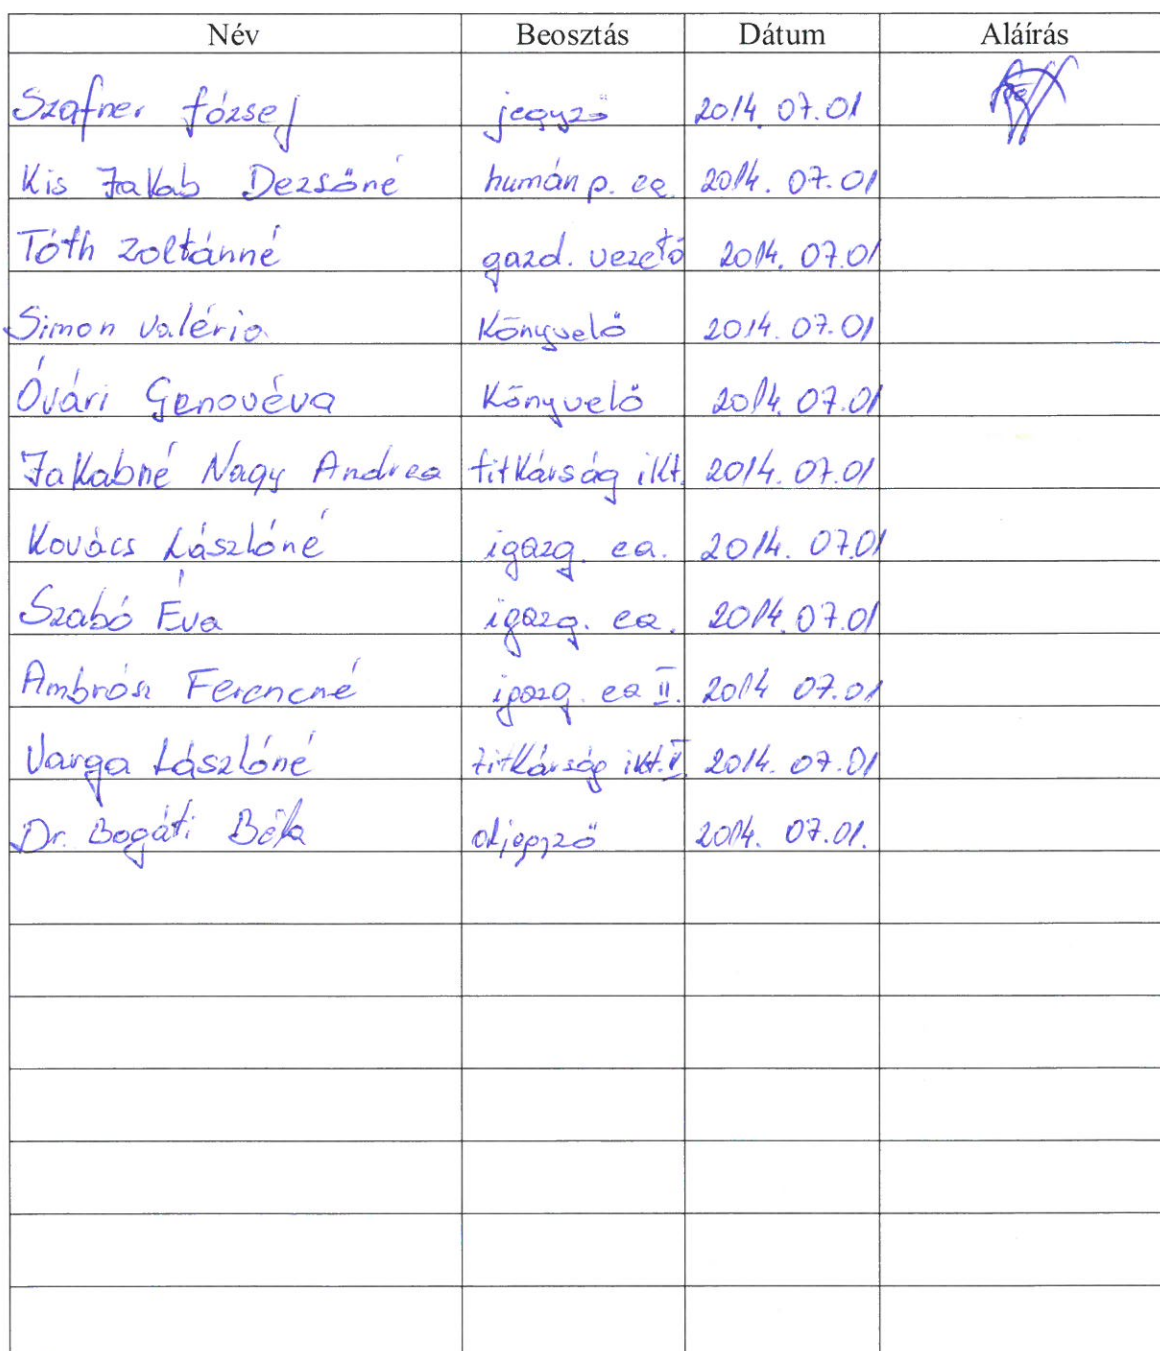 Név Beosztás Dátum Aláírás
Szafner József jegyző 2014. 07.01
Kis Jakab Dezsőné humán p. ea. 2014. 07.01
Tóth Zoltánné gazd. vezető 2014. 07.01
Simon Valéria Könyvelő 2014. 07.01
Óvári Genovéva Könyvelő 2014. 07.01
Jakabné Nagy Andrea titkárság ikt. 2014. 07.01
Kovács Lászlóné igazg. ea. 2014. 07.01
Szabó Éva igazg. ea. 2014. 07.01
Ambrósz Ferencné igazg. ea II. 2014 07.01
Varga Lászlóné titkárság ikt. II 2014. 07.01
Dr. Bogáti Béla aljegyző 2014. 07.01.